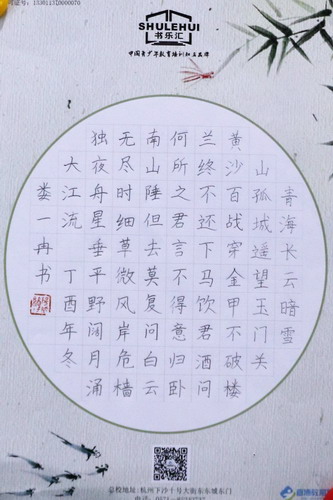 SHULEHUI
书乐汇
青海长云暗雪
山孤城遥望玉门关
黄沙百战穿金甲不破楼
兰终不还下马饮君酒问
何所之君言不得意归卧
南山陲但去莫复问白云
无尽时细草微风岸危樯
独夜舟星垂平野阔月涌
大江流 丁酉年冬
娄一冉书
总校地址:杭州下沙十号大街东东城东门